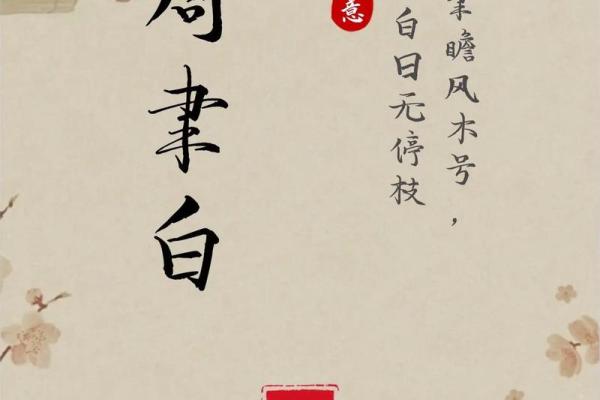 聿瞻风木号，
白日无停枝
意
周聿白